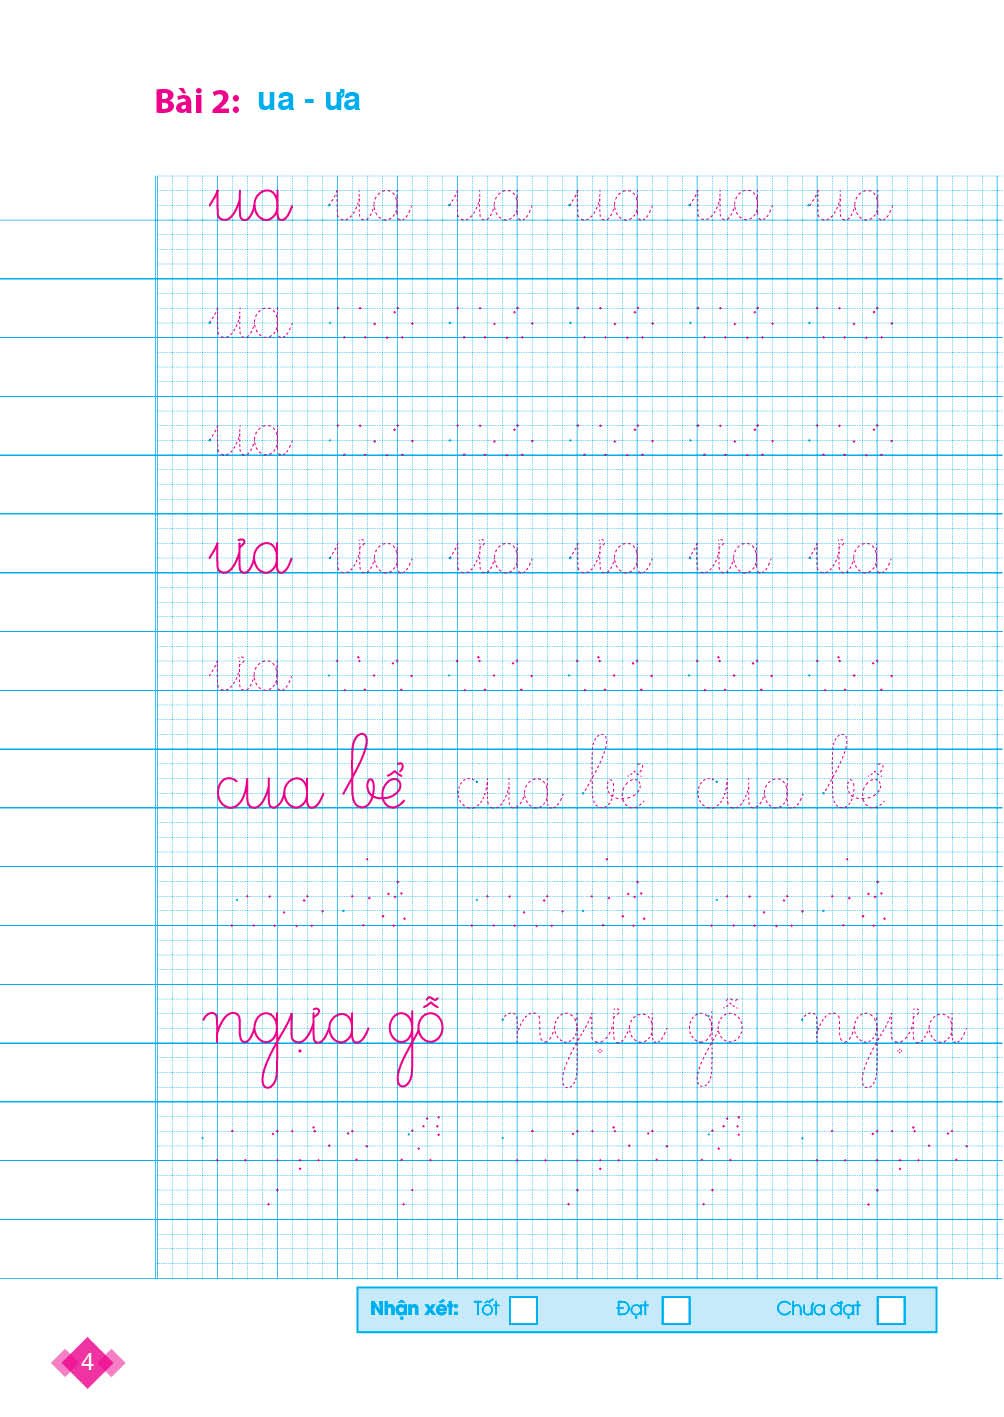 Bài 2: ua - ưa
ua ua ua ua ua ua
ua
ua
ưa ưa ưa ưa ưa ưa
ưa
cua bể cua bể cua bể
ngựa gỗ ngựa gỗ ngựa
Nhận xét: Tốt Đạt Chưa đạt
4